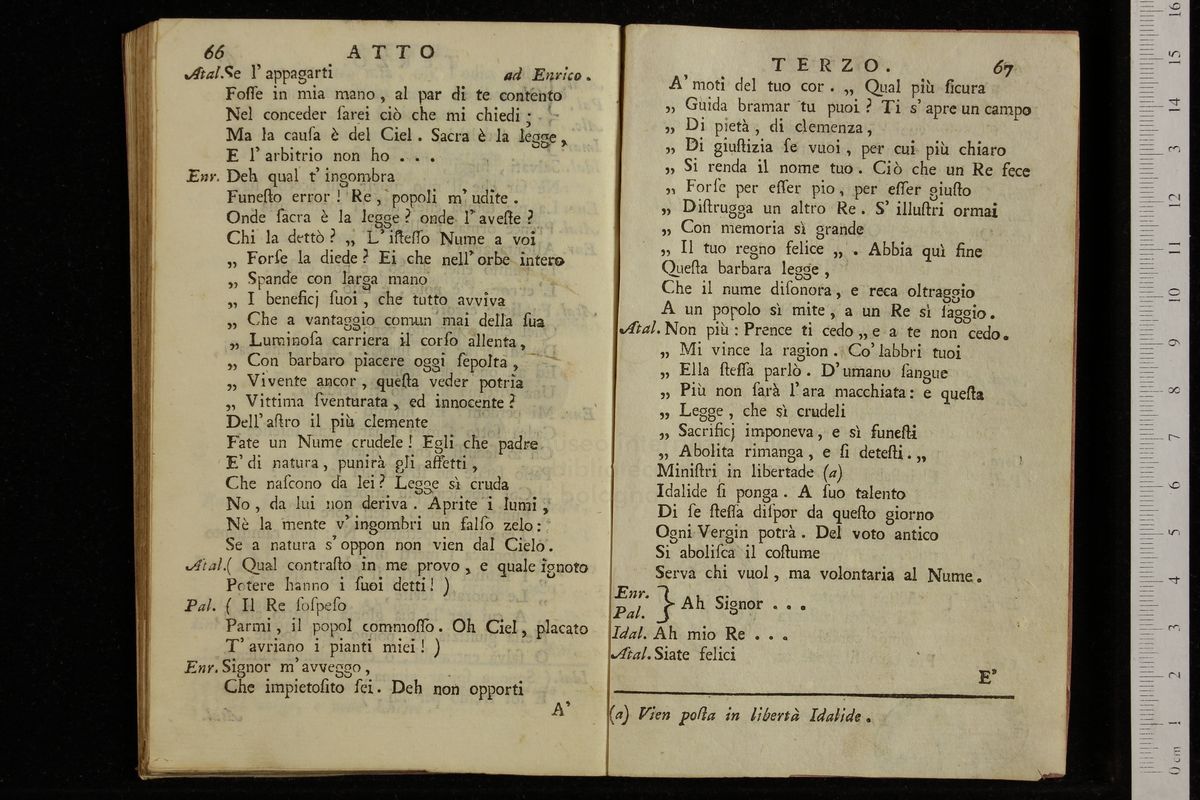 66 ATTO
Atal. Se l' appagarti ad Enrico.
Foſſe in mia mano, al par di te contento
Nel conceder ſarei ciò che mi chiedi;
Ma la cauſa è del Ciel. Sacra è la legge,
E l' arbitrio non ho . . .
Enr. Deh qual t' ingombra
Funeſto error! Re, popoli m' udite.
Onde ſacra è la legge? onde l' aveſte?
Chi la dettò? „ L' iſteſſo Nume a voi
„ Forſe la diede? Ei che nell' orbe intero
„ Spande con larga mano
„ I beneficj ſuoi, che tutto avviva
„ Che a vantaggio comun mai della ſua
„ Luminoſa carriera il corſo allenta,
„ Con barbaro piacere oggi ſepolta,
„ Vivente ancor, queſta veder potria
„ Vittima ſventurata, ed innocente?
Dell' aſtro il più clemente
Fate un Nume crudele! Egli che padre
E' di natura, punirà gli affetti,
Che naſcono da lei? Legge sì cruda
No, da lui non deriva. Aprite i lumi,
Nè la mente v' ingombri un falſo zelo:
Se a natura s' oppon non vien dal Cielo.
Atal. ( Qual contraſto in me provo, e quale ignoto
Potere hanno i ſuoi detti! )
Pal. ( Il Re ſoſpeſo
Parmi, il popol commoſſo. Oh Ciel, placato
T' avriano i pianti miei! )
Enr. Signor m' avveggo,
Che impietoſito ſei. Deh non opporti
A'
TERZO. 67
A' moti del tuo cor. „ Qual più ſicura
„ Guida bramar tu puoi? Ti s' apre un campo
„ Di pietà, di clemenza,
„ Di giuſtizia ſe vuoi, per cui più chiaro
„ Si renda il nome tuo. Ciò che un Re fece
„ Forſe per eſſer pio, per eſſer giuſto
„ Diſtrugga un altro Re. S' illuſtri ormai
„ Con memoria sì grande
„ Il tuo regno felice „ . Abbia quì fine
Queſta barbara legge,
Che il nume diſonora, e reca oltraggio
A un popolo sì mite, a un Re sì ſaggio.
Atal. Non più: Prence ti cedo „ e a te non cedo.
„ Mi vince la ragion. Co' labbri tuoi
„ Ella ſteſſa parlò. D' umano ſangue
„ Più non ſarà l' ara macchiata: e queſta
„ Legge, che sì crudeli
„ Sacrificj imponeva, e sì funeſti
„ Abolita rimanga, e ſi deteſti. „
Miniſtri in libertade (a)
Idalide ſi ponga. A ſuo talento
Di ſe ſteſſa diſpor da queſto giorno
Ogni Vergin potrà. Del voto antico
Si aboliſca il coſtume
Serva chi vuol, ma volontaria al Nume.
Enr.
Pal. } Ah Signor . . .
Idal. Ah mio Re . . .
Atal. Siate felici
E'
(a) Vien poſta in libertà Idalide.
16
15
14
13
12
11
10
9
8
7
6
5
4
3
2
1
0 cm